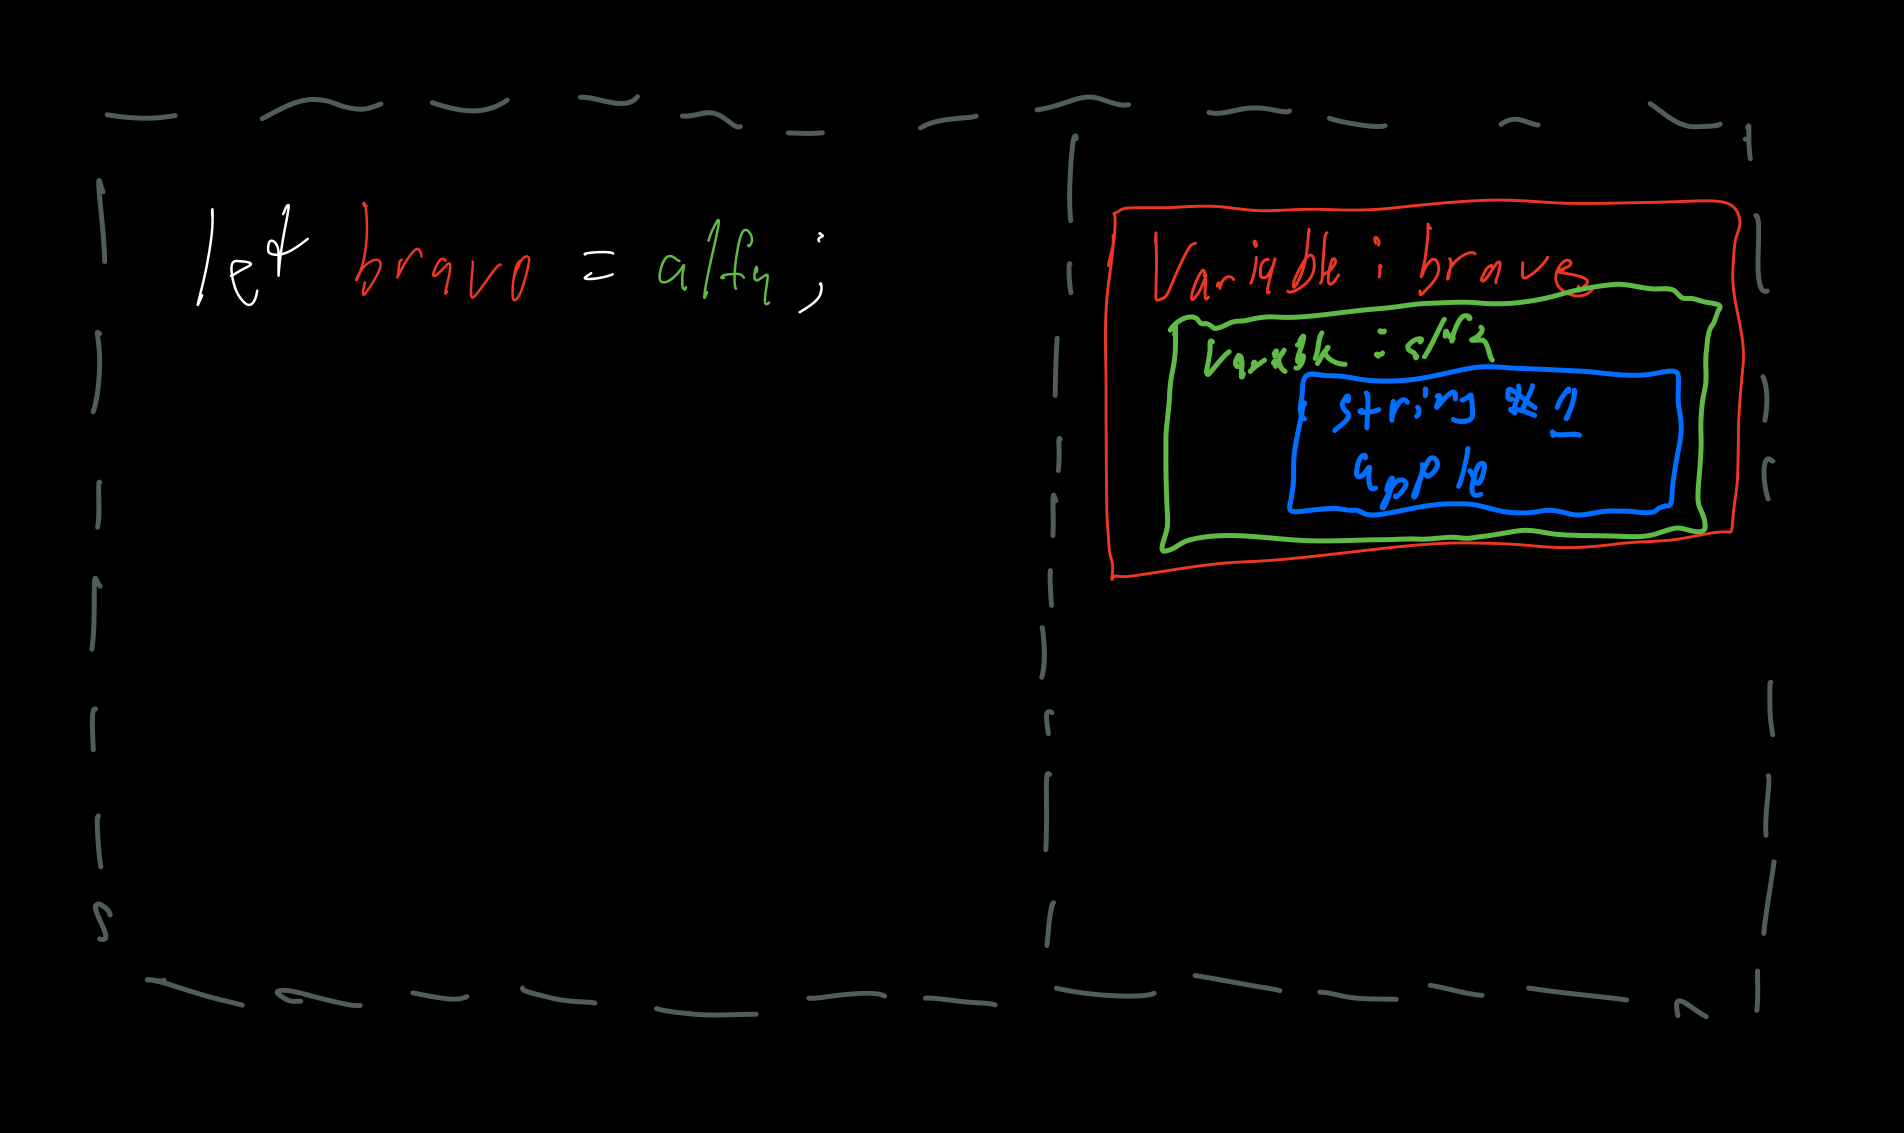 let bravo = alfa ;
Variable : bravo
Variable : alfa
string # 1
apple